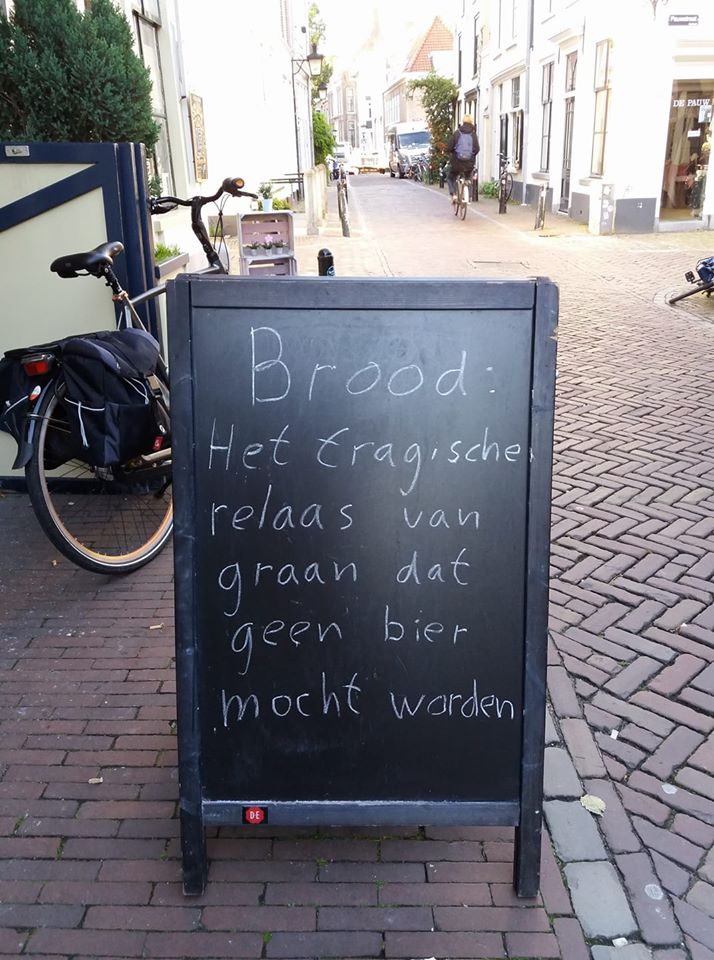 Brood:
Het tragische
relaas van
graan dat
geen bier
mocht worden
DE
DE PAUW